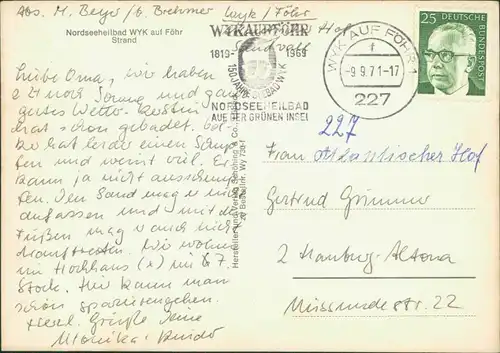 Abs. M. Beyer / b. Brehmer Wyk / Föhr
Nordseeheilbad WYK auf Föhr
Strand
Liebe Oma, wir haben
noch Sonne und ganz
gutes Wetter. Kerstin
hat schon gebadet.
hat leider einen Schnup-
fen und weint viel. Er
kann ja nicht ausschnau-
fen. Den Sand mag er nicht
anfassen und mit den
Füßen mag er auch nicht
drauftreten. Wir wohnen
im Hochhaus (x) im 7.
Stock. Hier kann man
schön spazierengehen.
Herzl. Grüße Deine
Monika + Kinder
WYK AUF FÖHR
1819- 1969
150 JAHRE SEEBAD WYK
NORDSEEHEILBAD
AUF DER GRÜNEN INSEL
WYK AUF FÖHR 1
f
-9 9.71-17
227
25
DEUTSCHE
BUNDESPOST
Herstellung und Verlag Schöning & Co.
Bestell-Nr. Wy 758
227
Atlantischer Hof
Frau
Gertrud Grimme
2 Hamburg-Altona
Missundestr. 22